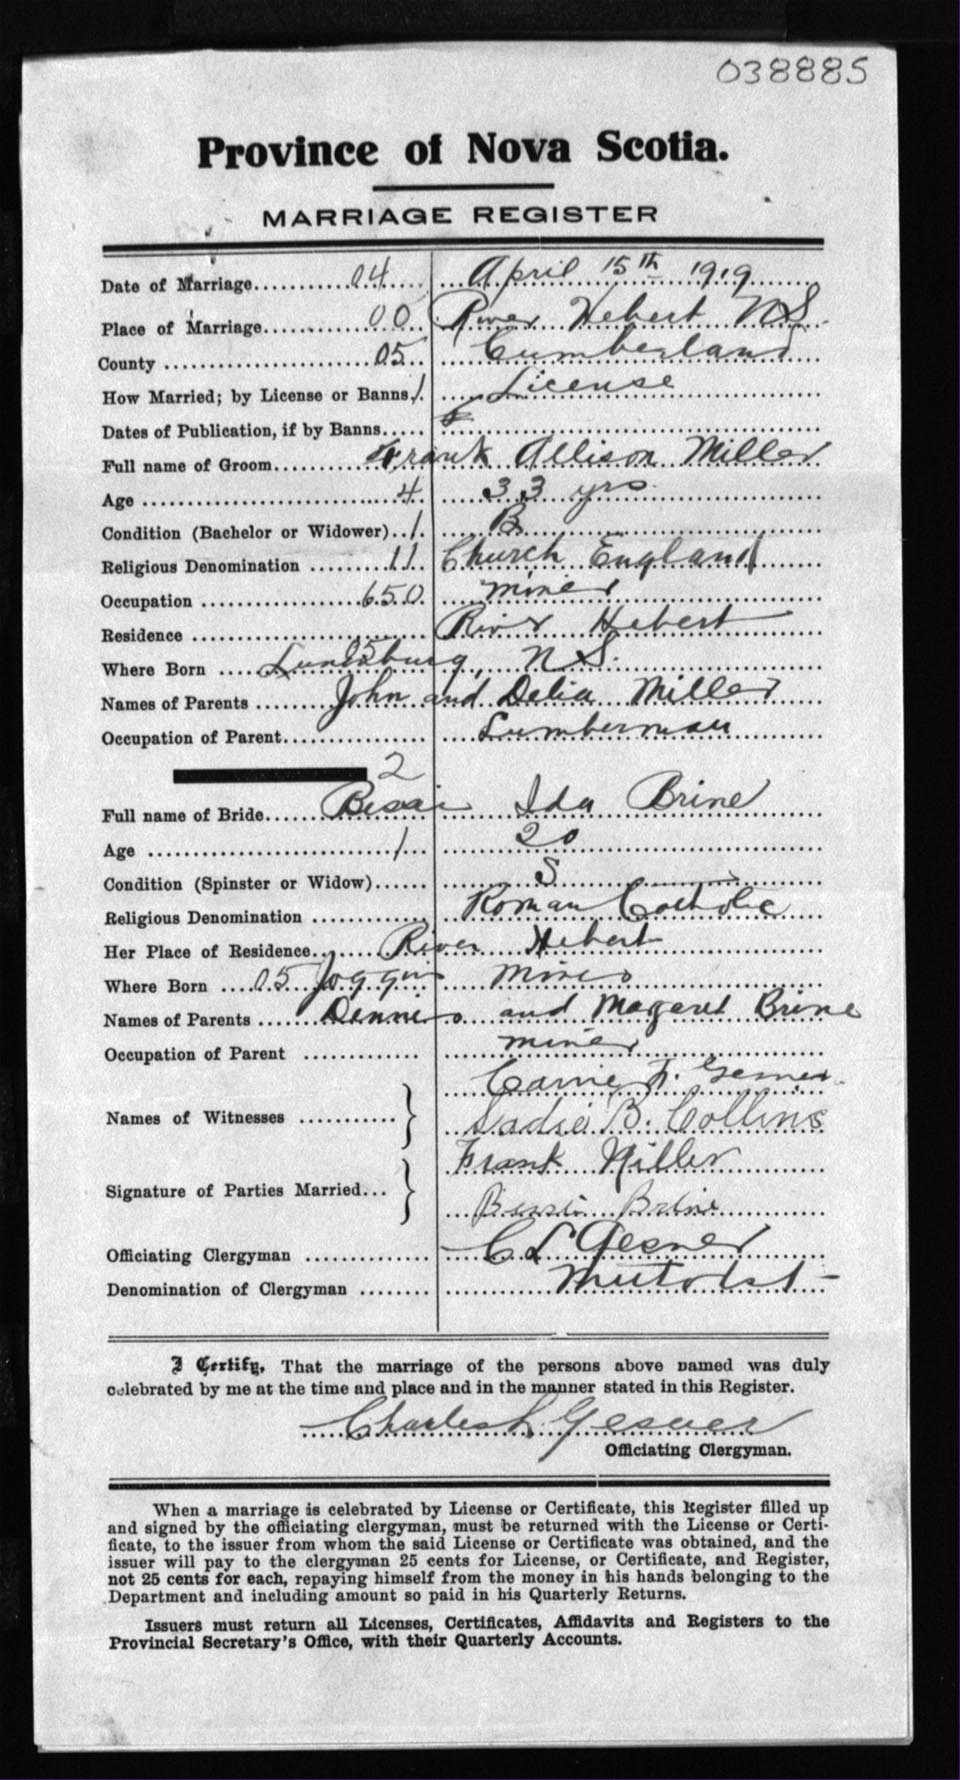 038885
Province of Nova Scotia.
MARRIAGE REGISTER
Date of Marriage 04 April 15th 1919
Place of Marriage 00 River Hebert NS
County 05 Cumberland
How Married; by License or Banns 1 License
Dates of Publication, if by Banns
Full name of Groom Frank Allison Miller
Age 4 33 yrs
Condition (Bachelor or Widower) 1 B
Religious Denomination 11 Church England
Occupation 650 miner
Residence River Hebert
Where Born 05 Lunenburg, NS.
Names of Parents John and Delia Miller
Occupation of Parent Lumberman
2
Full name of Bride Bessie Ida Brine
Age 1 20
Condition (Spinster or Widow) S
Religious Denomination Roman Catholic
Her Place of Residence River Hebert
Where Born 05 Joggins Mines
Names of Parents Dennis and Magaret Brine
Occupation of Parent miner
Carrie F. Gesner
Names of Witnesses Sadie B. Collins
Frank Miller
Signature of Parties Married
Bessie Brine
Officiating Clergyman C L Gesner
Denomination of Clergyman
I Certify, That the marriage of the persons above named was duly
celebrated by me at the time and place and in the manner stated in this Register.
Charles L. Gesner
Officiating Clergyman.
When a marriage is celebrated by License or Certificate, this Register filled up
and signed by the officiating clergyman, must be returned with the License or Certi-
ficate, to the issuer from whom the said License or Certificate was obtained, and the
issuer will pay to the clergyman 25 cents for License, or Certificate, and Register,
not 25 cents for each, repaying himself from the money in his hands belonging to the
Department and including amount so paid in his Quarterly Returns.
Issuers must return all Licenses, Certificates, Affidavits and Registers to the
Provincial Secretary's Office, with their Quarterly Accounts.